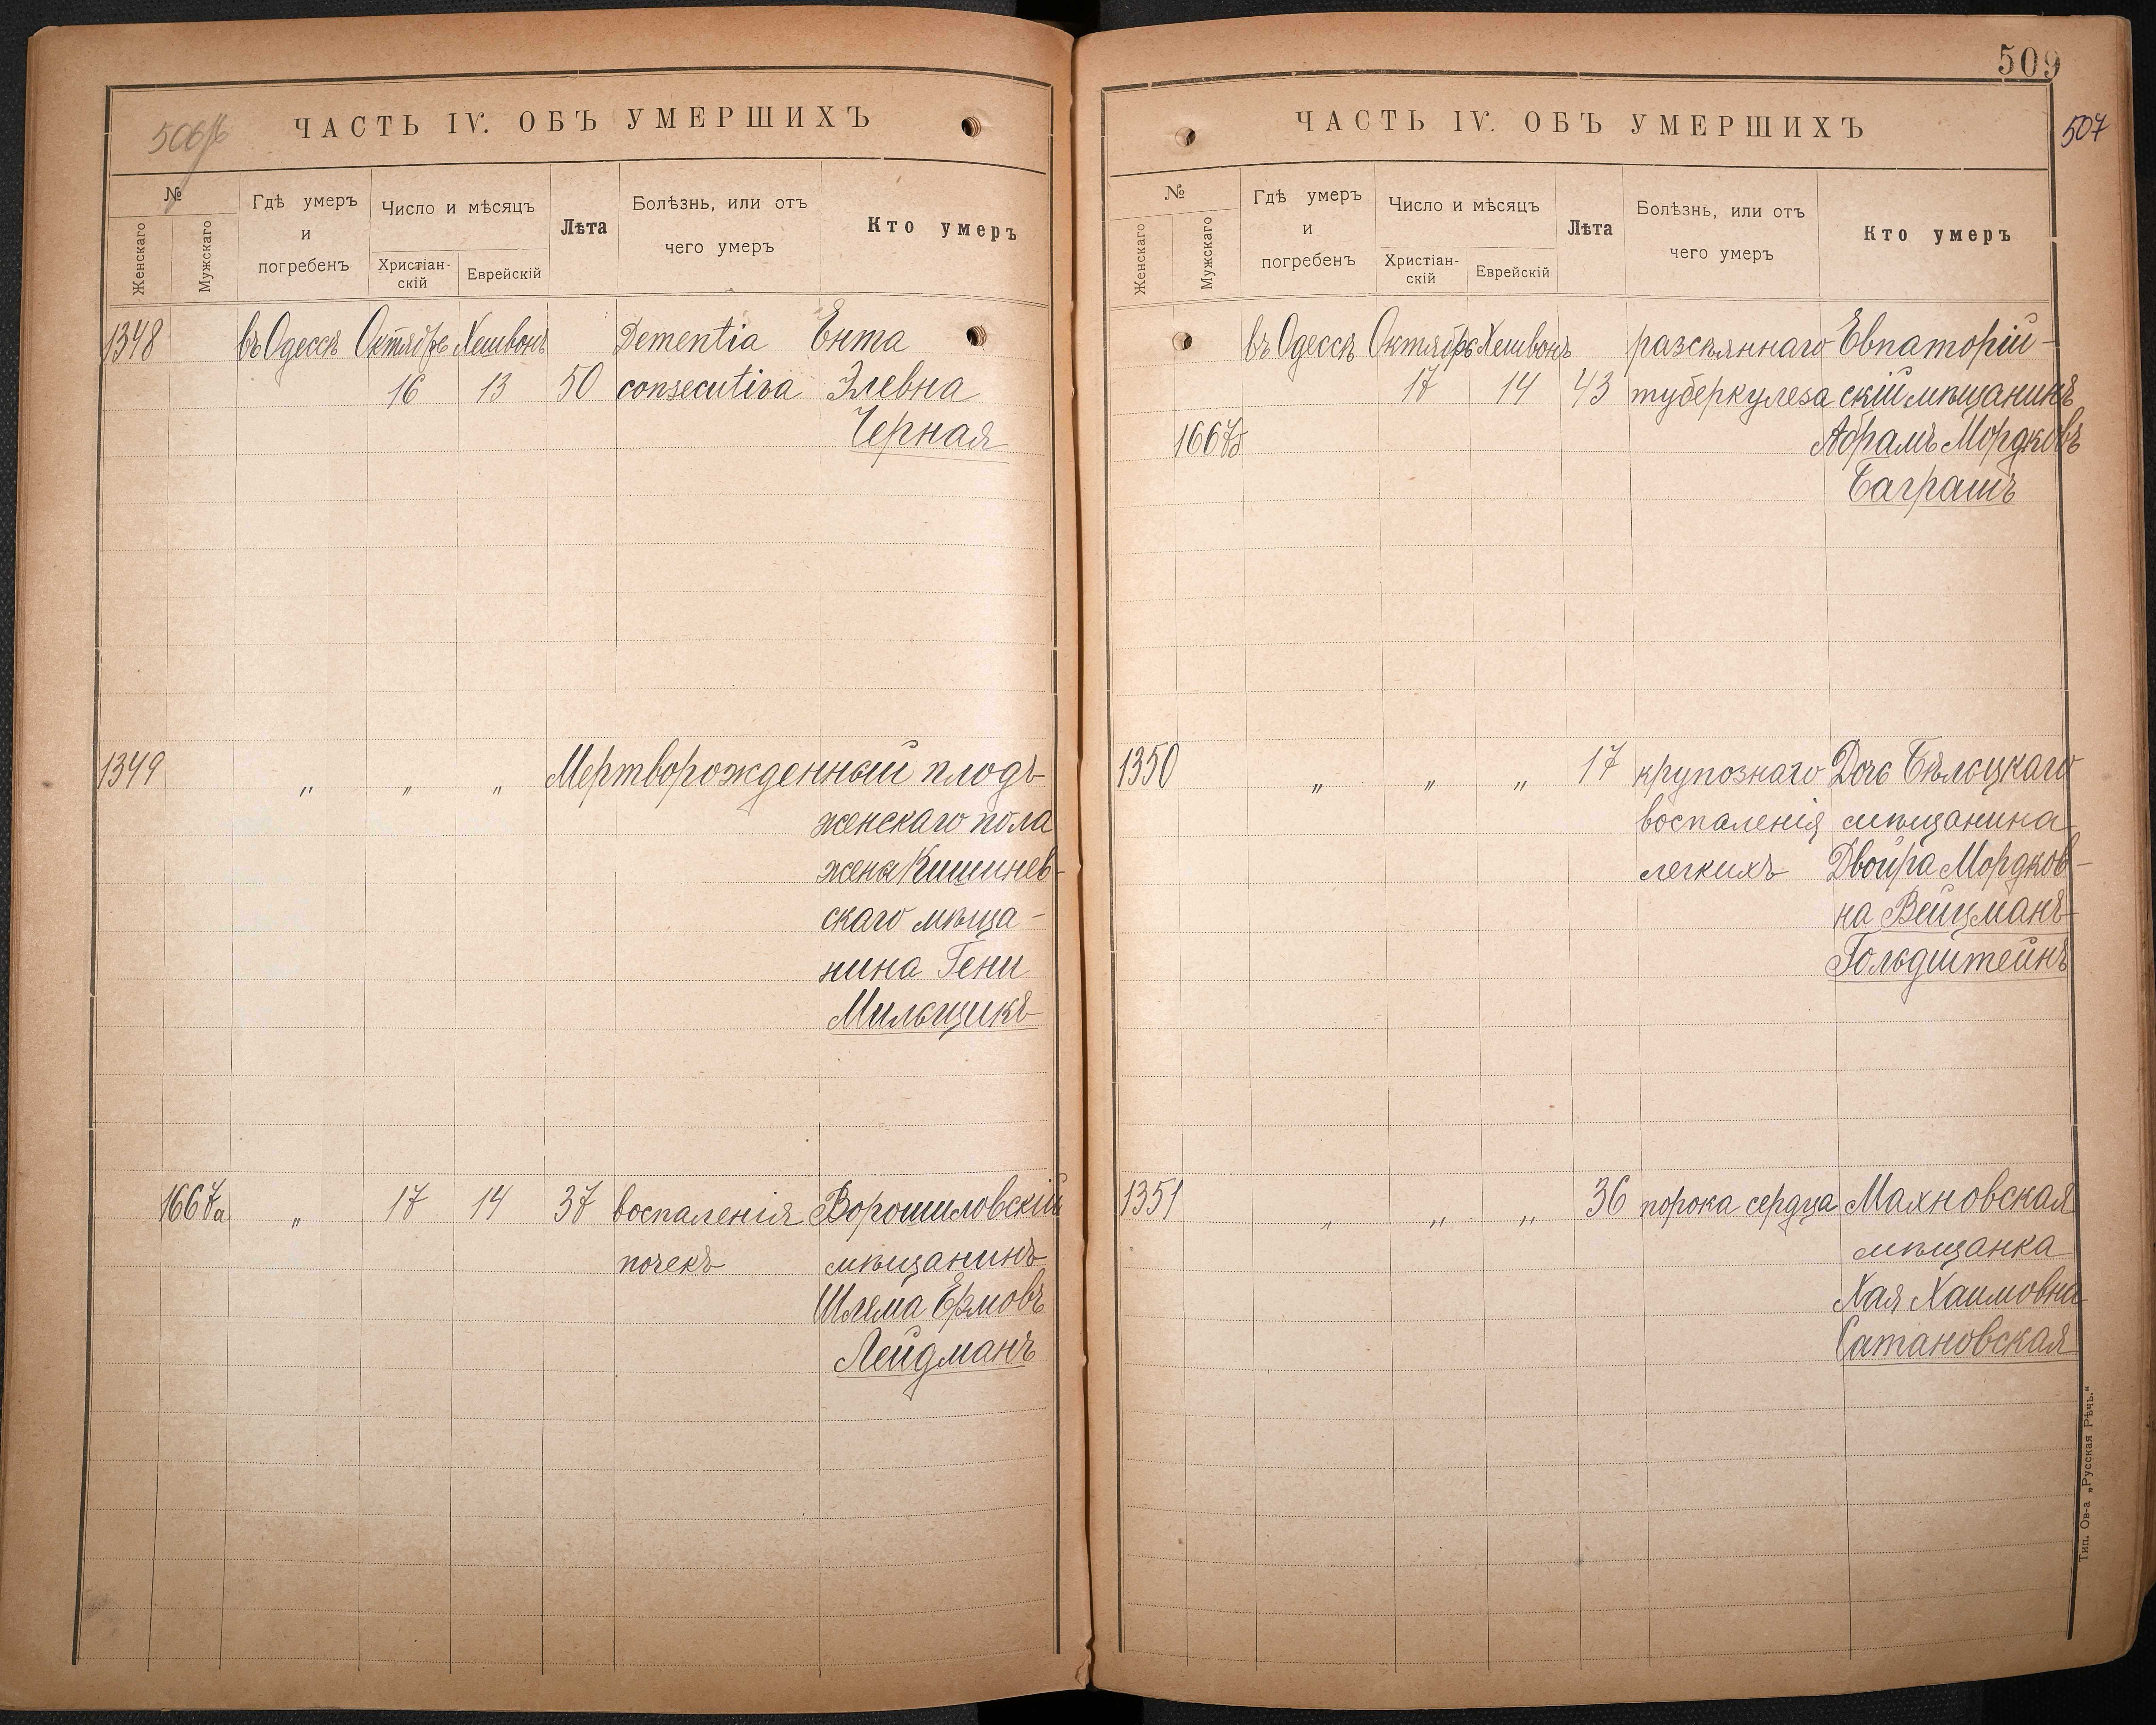 506 об
ЧАСТЬ IV. ОБЪ УМЕРШИХЪ
№
Женскаго
Мужскаго
Гдѣ умеръ
и
погребенъ
Число и мѣсяцъ
Христіан-
скій
Еврейскій
Лѣта
Болѣзнь, или отъ
чего умеръ
Кто умеръ
1348 въ Одессѣ Октябрь Хешвонъ Dementia Ента
16 13 50 consecutiva Элевна
Черная
1349 „ „ „ Мертворожденный плодъ
женскаго пола
жены Кишинев-
скаго мѣща-
нина Гени
Мильщикъ
1667а „ 17 14 37 воспаленія Ворошиловскій
почекъ мѣщанинъ
Шлема
Лейдманъ
509
507
ЧАСТЬ IV. ОБЪ УМЕРШИХЪ
№
Женскаго
Мужскаго
Гдѣ умеръ
и
погребенъ
Число и мѣсяцъ
Христіан-
скій
Еврейскій
Лѣта
Болѣзнь, или отъ
чего умеръ
Кто умеръ
въ Одессѣ Октябрь Хешвонъ разсѣяннаго Евпаторій-
17 14 43 туберкулеза скій мѣщанинъ
1667б Абрамъ Мордковъ
Баграшъ
1350 „ „ „ 17 крупознаго Дочь Бѣльцкаго
воспаленія мѣщанина
легкихъ Двойра Мордков-
на Вейцманъ-
Гольдштейнъ
1351 „ „ „ 36 порока сердца Махновская
мѣщанка
Хая Хаимовна
Сатановская
Тип. Ов-а „Русская Рѣчь.“